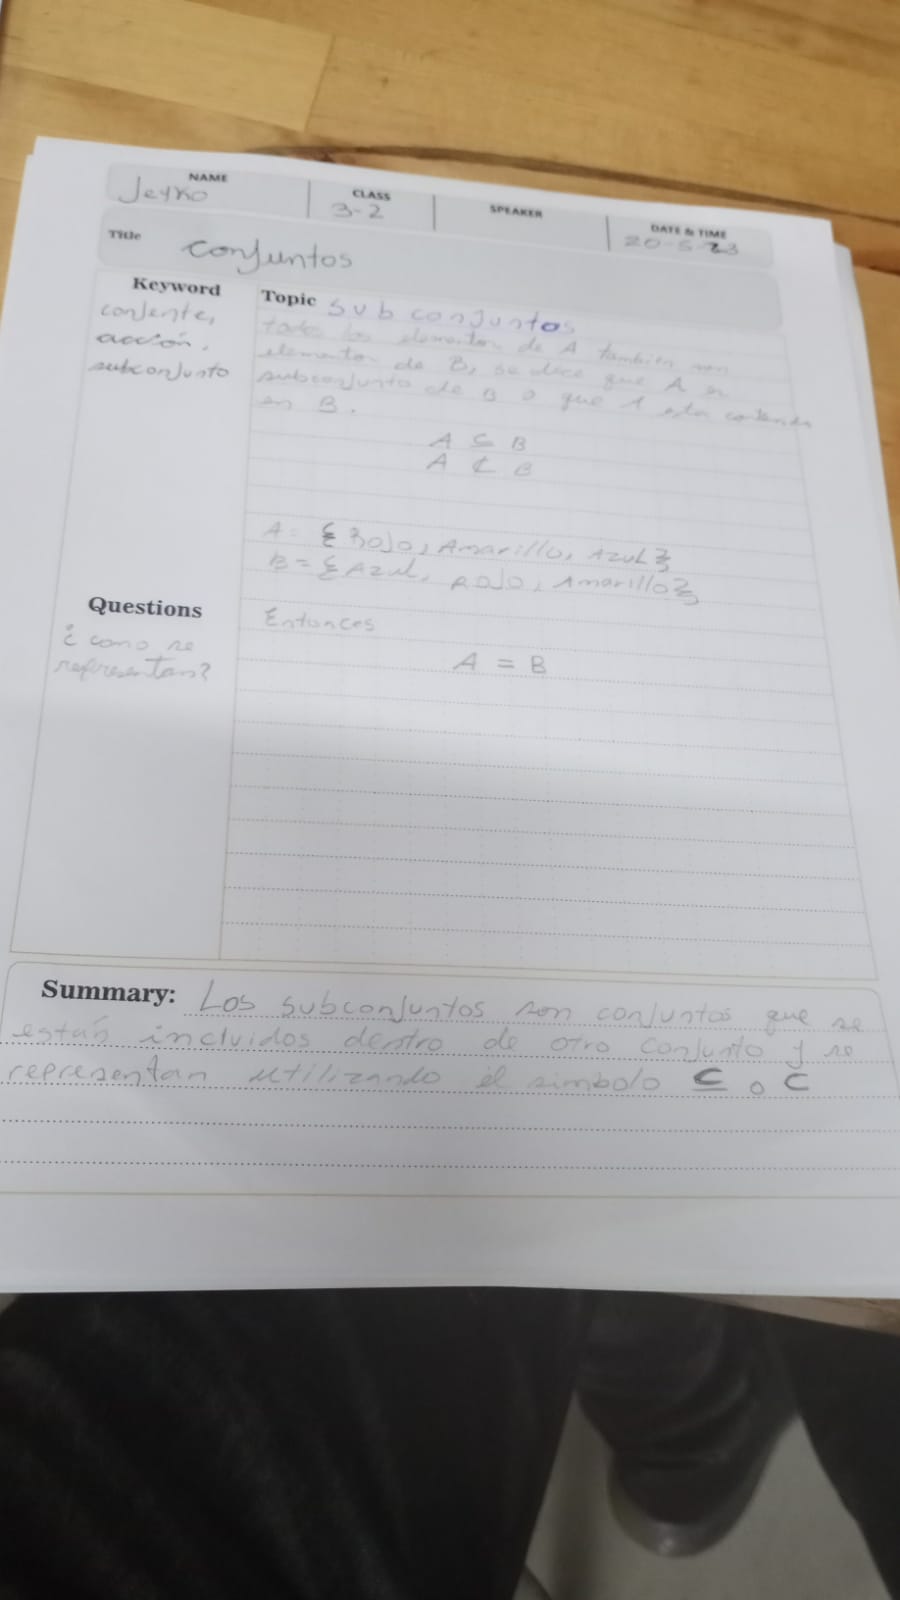 NAME
Jeyko
CLASS
3-2
SPEAKER
DATE & TIME
20-5-23
Title
conjuntos
Keyword
acción,
subconjunto
Topic subconjuntos
todos los elementos de A también son
elementos de B, se dice que A es
subconjunto de B o que A esta contenido
en B.
A ⊆ B
A ⊄ B
A = { Rojo, Amarillo, Azul }
B = { Azul, Rojo, Amarillo }
Entonces
A = B
Questions
¿ como se
representan?
Summary: Los subconjuntos son conjuntos que se
están incluidos dentro de otro conjunto y se
representan utilizando el simbolo ⊆ o ⊂